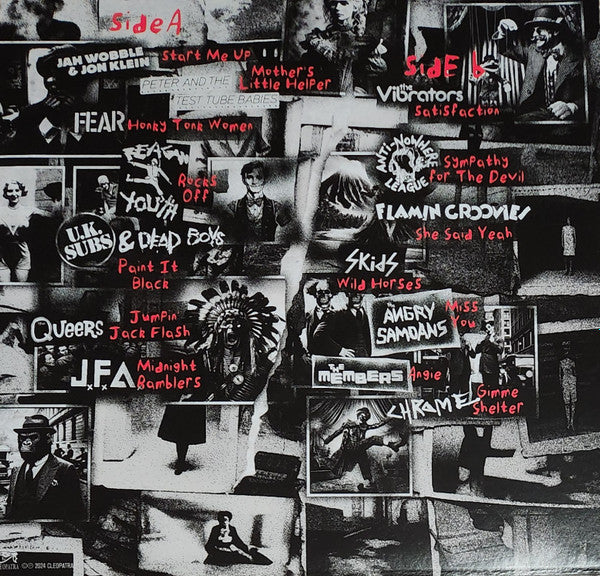 Side A
JAH WOBBLE
& JON KLEIN
Start Me Up
PETER AND THE
TEST TUBE BABIES
Mother's
Little Helper
FEAR
Honky Tonk Women
REAGAN
YOUTH
Rocks
Off
U.K.
SUBS
& DEAD BOYS
Paint It
Black
QUEERS
Jumpin
Jack Flash
J.F.A
Midnight
Ramblers
SidE b
the
Vibrators
Satisfaction
ANTI-NOWHERE
LEAGUE
Sympathy
for The Devil
FLAMIN GROOVIES
She Said Yeah
SKids
Wild Horses
ANGRY
SAMOANS
Miss
You
THE
MEMBERS
Angie
CHROME
Gimme
Shelter
CLEOPATRA
©℗ 2024 CLEOPATRA